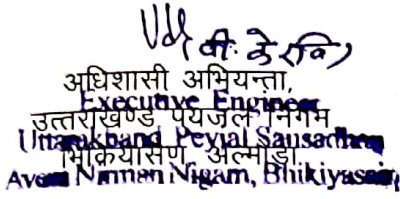 वी. के रवि)
अधिशासी अभियन्ता,
Executive Engineer
उत्तराखण्ड पेयजल निगम
Uttarakhand Peyjal Sansadhan
भिकियासैंण अल्मोड़ा
Avem Nirman Nigam, Bhikiyasain,